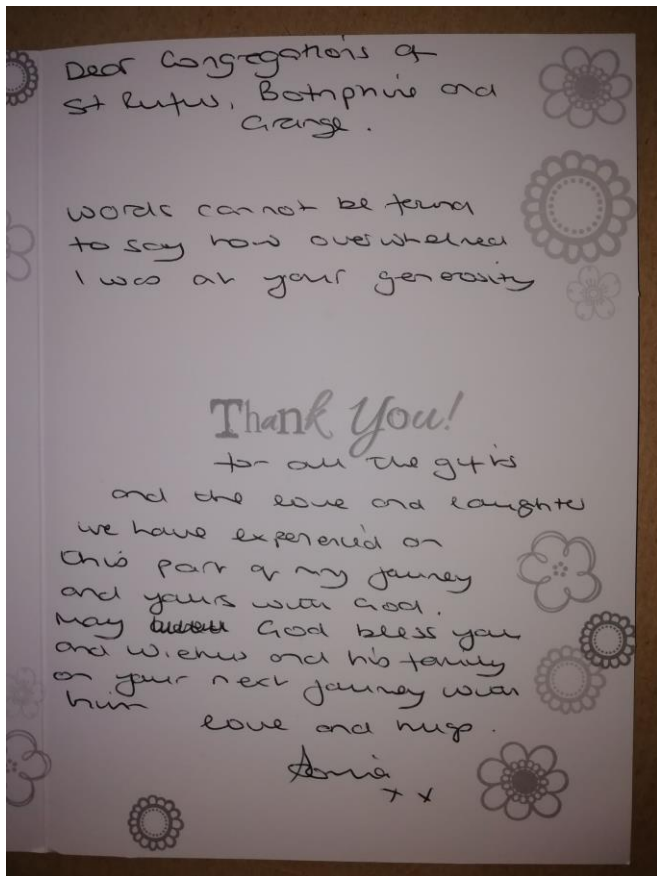 Dear Congregations of
St Rufus, Botriphnie and
Grange.
words cannot be found
to say how overwhelmed
I was at your generosity
Thank You!
for all the gifts
and the love and laughter
we have experienced on
this part of my journey
and yours with God.
May God bless you
and and his family
on your next journey with
him
love and hugs.
x x